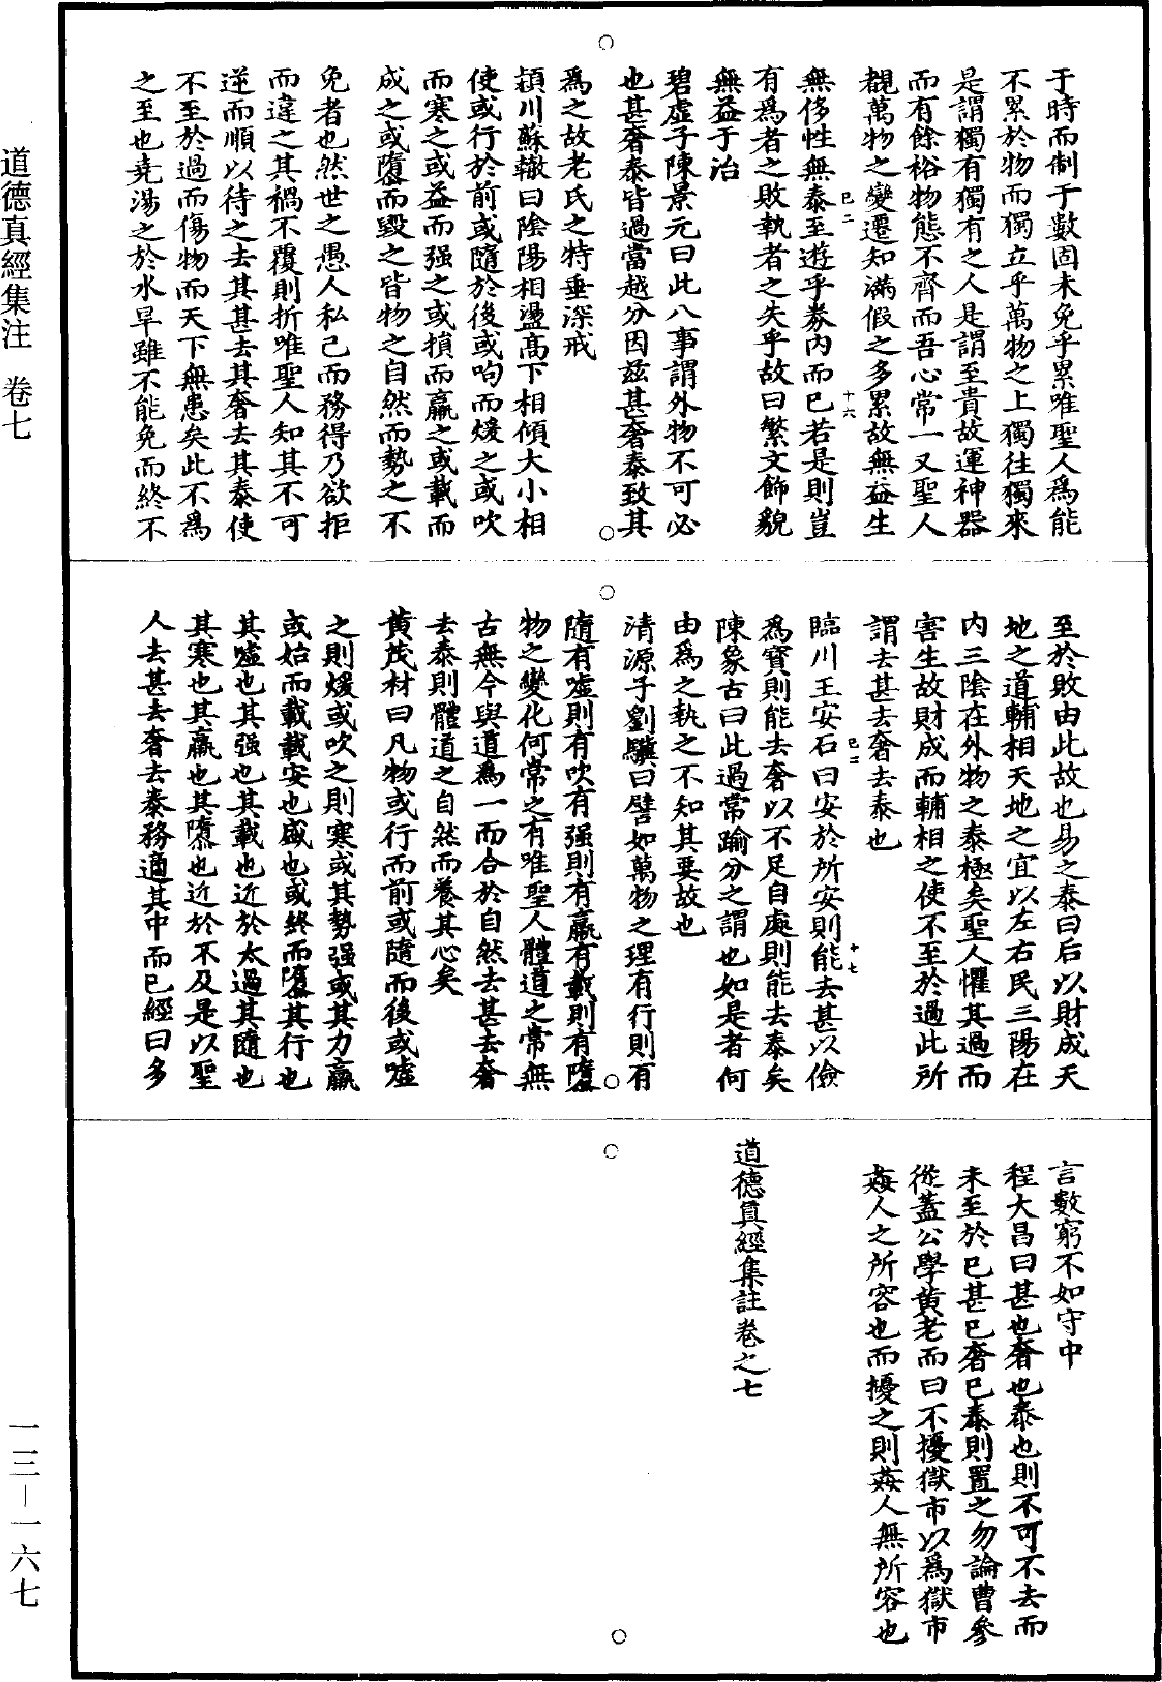 于時而制于數固未免乎累唯聖人爲能
不累於物而獨立乎萬物之上獨往獨來
是謂獨有獨有之人是謂至貴故運神器
而有餘裕物態不齊而吾心常一又聖人
覩萬物之變遷知滿假之多累故無益生
已二 十六
無侈性無泰至遊乎券內而已若是則豈
有爲者之敗執者之失乎故曰繁文飾貌
無益于治
碧虛子陳景元曰此八事謂外物不可必
也甚奢泰皆過當越分因茲甚奢泰致其
爲之故老氏之特垂深戒
頴川蘇轍曰陰陽相盪高下相傾大小相
使或行於前或隨於後或呴而煖之或吹
而寒之或益而强之或損而羸之或載而
成之或隳而毀之皆物之自然而勢之不
免者也然世之愚人私己而務得乃欲拒
而違之其禍不覆則折唯聖人知其不可
逆而順以待之去其甚去其奢去其泰使
不至於過而傷物而天下無患矣此不爲
之至也堯湯之於水旱雖不能免而終不
至於敗由此故也易之泰曰后以財成天
地之道輔相天地之宜以左右民三陽在
內三陰在外物之泰極矣聖人懼其過而
害生故財成而輔相之使不至於過此所
謂去甚去奢去泰也
已二 十七
臨川王安石曰安於所安則能去甚以儉
爲寳則能去奢以不足自處則能去泰矣
陳象古曰此過常踰分之謂也如是者何
由爲之執之不知其要故也
清源子劉驥曰譬如萬物之理有行則有
隨有噓則有吹有强則有羸有載則有隳
物之變化何常之有唯聖人體道之常無
古無今與道爲一而合於自然去甚去奢
去泰則體道之自然而養其心矣
黃茂材曰凡物或行而前或隨而後或噓
之則煖或吹之則寒或其勢强或其力羸
或始而載載安也盛也或終而隳其行也
其噓也其强也其載也近於太過其隨也
其寒也其羸也其隳也近於不及是以聖
人去甚去奢去泰務適其中而已經曰多
言數窮不如守中
程大昌曰甚也奢也泰也則不可不去而
未至於已甚已奢已泰則置之勿論曹參
從蓋公學黃老而曰不擾獄市以爲獄市
姦人之所容也而擾之則姦人無所容也
道德真經集註卷之七
道德真經集注 卷七
一三－一六七